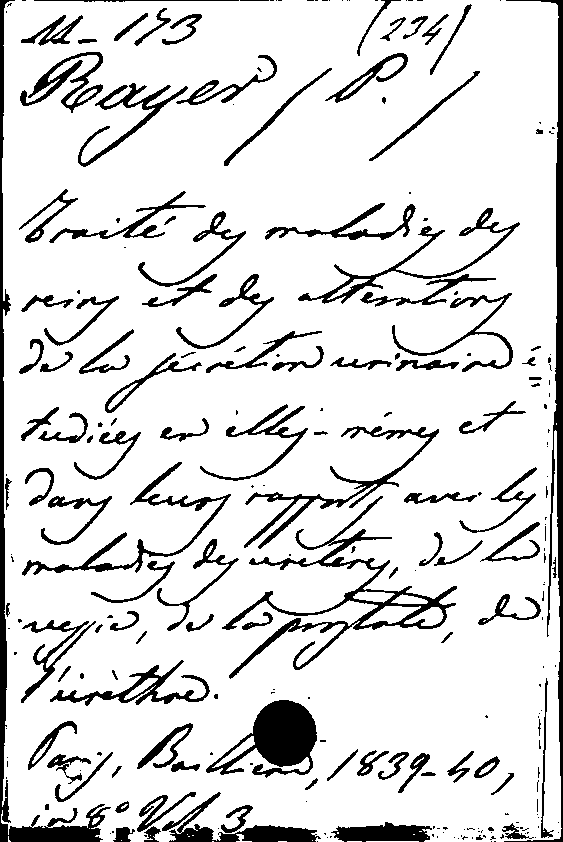 11-173 (234)
Rayer (P.)
Traité des maladies des
reins et des altérations
de la sécrétion urinaire é=
tudiées en elles-mêmes et
dans leurs rapports avec les
maladies des uretères, de la
vessie, de la prostate, de
l'urèthre.
Paris, Baillière, 1839-40,
in 8° Vol. 3